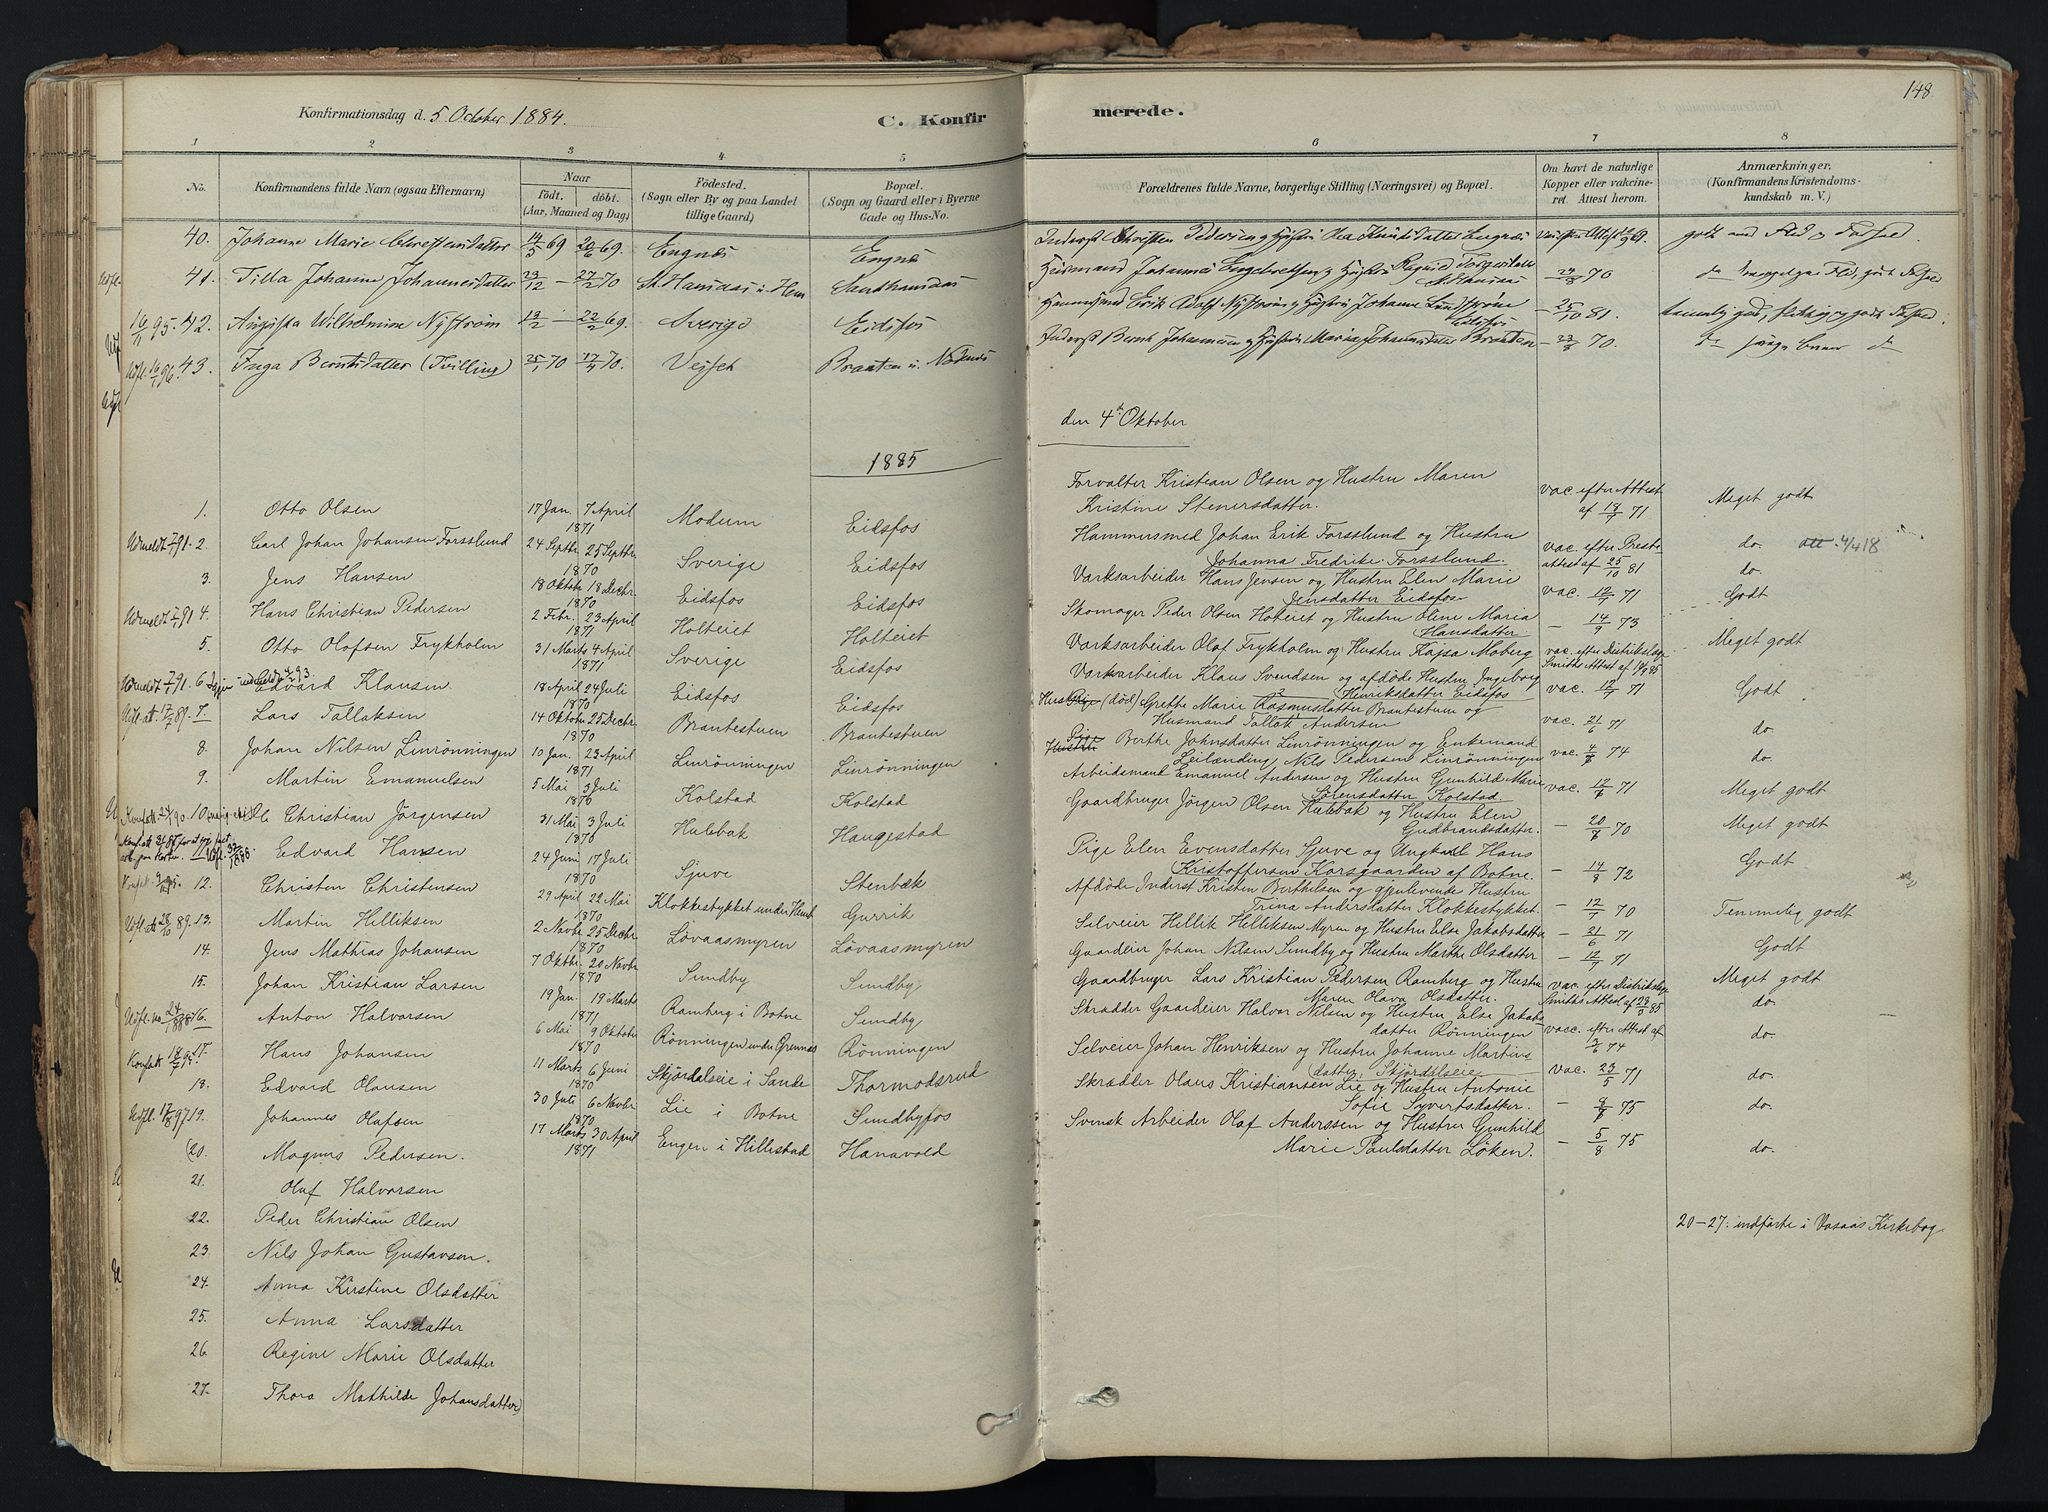 148
Konfirmationsdag d. 5 October 1884.
C. Konfirmerede.
1 2 3 4 5 6 7 8
No.
Konfirmandens fulde Navn (ogsaa Efternavn)
Naar
födt. döbt.
(Aar, Maaned og Dag)
Födested.
(Sogn eller By og paa Landet
tillige Gaard)
Bopæl.
(Sogn og Gaard eller i Byerne
Gade og Hus-No.
Forældrenes fulde Navne, borgerlige Stilling (Næringsvei) og Bopæl.
Om havt de naturlige
Kopper eller vakcine-
ret. Attest herom.
Anmærkninger.
(Konfirmandens Kristendoms-
kundskab m. V.)
40. Johanne Marie Christensdatter 14/5 69 20/6 69. Engnes Engnes
41. Tilda Johanne Johannesdatter 23/12 — 27/2 70 St. Hansaas u. Hem Santhansaas — 29/8 70
42. Augusta Wilhelmine Nyström 13/2 — 22/2 69. Sverige Eidsfos — 25/10 81.
43. Inga Berntsdatter (Tvilling) 25/1 70 17/4 70. Vejset Branten — 23/8 70.
den 4de Oktober
1885
1. Otto Olsen 17 Jan. 7 April 1871 Modum Eidsfos Forvalter Kristian Olsen og Hustru Maren Kristine Stenersdatter. vac. efter Attest af 18/7 71 Meget godt
2. Carl Johan Johansen Forsslund 24 Septbr. 25 Septbr 1870 Sverige Eidsfos Hammersmed Johan Erik Forsslund og Hustru Johanna Fredrike Forsslund. vac. efter Prestattest af 25/10 81 do. att. 4/4 18
3. Jens Hansen 18 Oktobr 18 Decbr. 1870 Eidsfos Eidsfos Varksarbeider Hans Jensen og Hustru Elen Marie Jensdatter Eidsfos vac. 12/7 71 do.
4. Hans Christian Pedersen 2 Febr. 23 April 1871 Holteiet Holteiet Skomager Peder Olsen Holteiet og Hustru Oline Maria Hansdatter — 14/9 73 Godt
5. Otto Olafsen Frykholm 31 Marts 4 April 1871 Sverige Eidsfos Varksarbeider Olaf Frykholm og Hustru Kajsa Moberg vac. efter Distriktslæge Smiths Attest af 85 Meget godt
6. Edvard Klausen 18 April 24 Juli 1870 Eidsfos Eidsfos Varksarbeider Klaus Svendsen og afdöde Hustru Ingeborg Henriksdatter Eidsfos vac. 12/7 71 Godt
7. Lars Tallaksen 14 Oktober 25 Decbr. 1870 Brantestuen Brantestuen (död) Grethe Marie Rasmusdatter Brantestuen og Husmand Tallak Andersen vac. 21/6 71 do.
8. Johan Nilsen Linrönningen 10 Jan. 23 April 1871 Linrönningen Linrönningen Pige Berthe Johnsdatter Linrönningen og Enkemand Leilænding Nils Pedersen Linrönningen vac. 74 do.
9. Martin Emanuelsen 5 Mai 3 Juli 1870 Kolstad Kolstad Arbeidsmand Emanuel Andersen og Hustru Gunhild Marie Sörensdatter Kolstad. vac. 12/7 71 Meget godt
10 Christian Jörgensen 31 Mai 3 Juli 1870 Hulebak Haugestad Gaardbruger Jörgen Olsen Hulebak og Hustru Elen Gudbrandsdatter. — 20/8 70 Meget godt
11 Edvard Hansen 24 Juni 17 Juli 1870 Sjuve Stenbæk Pige Elen Evensdatter Sjuve og Ungkarl Hans Kristoffersen Korsgaarden af Botne. — 14/8 72 Godt
12. Christen Christensen 29 April 22 Mai 1870 Klokkestykket under Hem Gurrik Afdöde Inderst Kristen Berthelsen og gjenlevende Hustru Trina Andersdatter Klokkestykket. — 12/7 70 Temmelig godt
13. Martin Helliksen 2 Novbr. 25 Decbr. 1870 Lövaasmyren Lövaasmyren Selveier Hellik Helliksen Myren og Hustru Else Jakobsdatter — 21/6 71 Godt
14. Jens Mathias Johansen 7 Oktbr. 20 Novbr 1870 Sundby Sundby Gaardeier Johan Nilsen Sundby og Hustru Marthe Olsdatter — 12/7 71 Meget godt
15. Johan Kristian Larsen 19 Jan. 19 Marts 1871 Ramberg i Botne Sundby Gaardbruger Lars Kristian Pedersen Ramberg og Hustru Maren Olava Olsdatter. vac. efter Distriktslæge Smiths Attest af 85 do.
16. Anton Halvorsen 6 Mai 9 Oktober 1870 Rönningen under Grennes Rönningen Skrædder Gaardeier Halvor Nilsen og Hustru Else Jakobsdatter Rönningen vacc. efter Attest af 3/6 74 do.
17. Hans Johansen 11 Marts 6 Juni 1870 Skjördelseie i Sande Thormodsrud Selveier Johan Henriksen og Hustru Johanne Martinsdatter, Skjördelseie vac. 23/5 71 do.
18. Edvard Olausen 30 Juli 6 Novbr 1870 Lie i Botne Sundbyfos Skrædder Olaus Kristiansen Lie og Hustru Antonie Sofie Syvertsdatter. — 75 do.
19. Johannes Olafsen 17 Marts 30 April 1871 Engen i Hillestad Hanavold Svensk Arbeider Olaf Anderssen og Hustru Gunhild Marie Paulsdatter Löken. — 5/8 75 do.
(20. Magnus Pedersen.
21. Oluf Halvorsen
22. Peder Christian Olsen 20–27: indförte i Vasaas Kirkebog
23. Nils Johan Gustavsen.
24. Anna Kirstine Olsdatter
25. Anna Larsdatter
26. Regine Marie Olsdatter
27. Thora Mathilde Johansdatter)